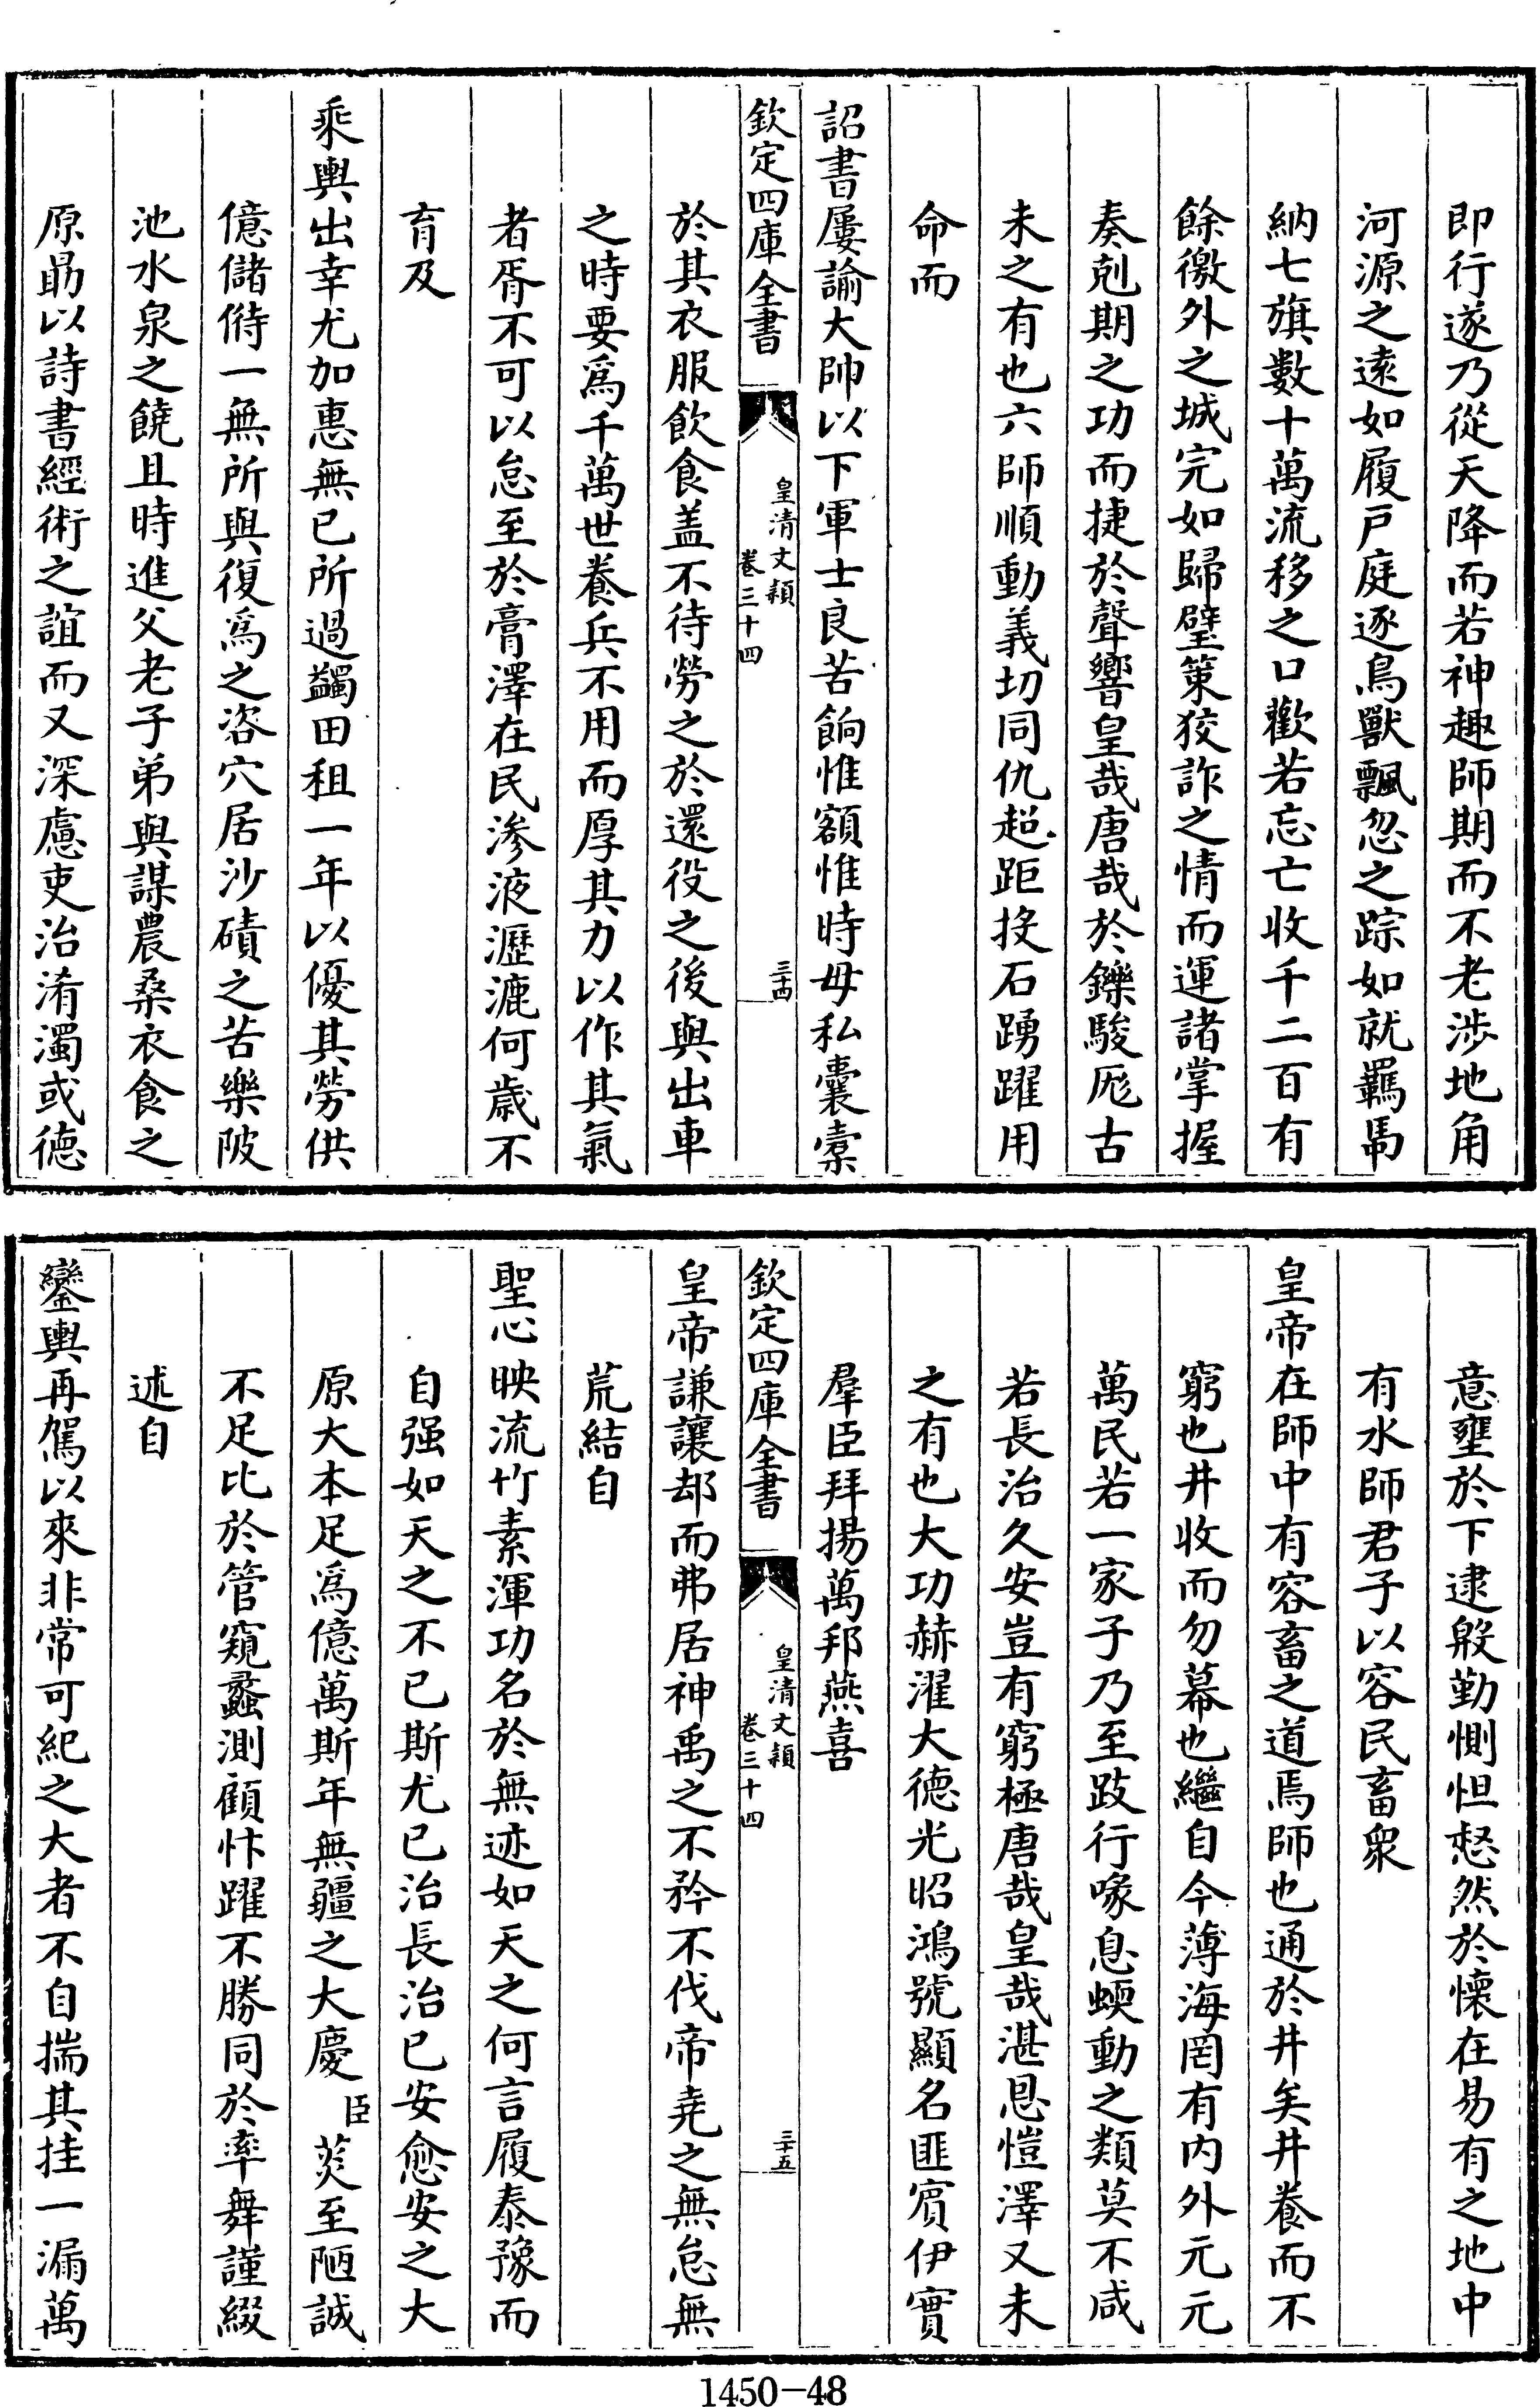 即行遂乃從天降而若神趣師期而不老涉地角
河源之遠如履戸庭逐鳥獸飄忽之踪如就羈馽
納七旗數十萬流移之口歡若忘亡收千二百有
餘徼外之城完如歸璧䇿狡詐之情而運諸掌握
奏剋期之功而捷於聲響皇哉唐哉於鑠駿厖古
未之有也六師順動義切同仇超距投石踴躍用
命而
詔書屢諭大帥以下軍士良苦餉惟額惟時毋私囊橐
欽定四庫全書
皇清文穎
卷三十四
三十四
於其衣服飲食盖不待勞之於還役之後與出車
之時要爲千萬世養兵不用而厚其力以作其氣
者胥不可以怠至於膏澤在民滲液瀝漉何歳不
育及
乘輿出幸尤加惠無已所過蠲田租一年以優其勞供
億儲偫一無所與復爲之咨穴居沙磧之苦樂陂
池水泉之饒且時進父老子弟與謀農桑衣食之
原勗以詩書經術之誼而又深慮吏治淆濁或德
意壅於下逮殷勤惻怛惄然於懷在易有之地中
有水師君子以容民畜衆
皇帝在師中有容畜之道焉師也通於井矣井養而不
窮也井收而勿幕也繼自今薄海罔有内外元元
萬民若一家子乃至跂行喙息蝡動之類莫不咸
若長治久安豈有窮極唐哉皇哉湛恩愷澤又未
之有也大功赫濯大德光昭鴻號顯名匪賓伊實
羣臣拜揚萬邦燕喜
欽定四庫全書
皇清文穎
卷三十四
三十五
皇帝謙讓却而弗居神禹之不矜不伐帝堯之無怠無
荒結自
聖心映流竹素渾功名於無迹如天之何言履泰豫而
自强如天之不已斯尤已治長治已安愈安之大
原大本足爲億萬斯年無疆之大慶臣菼至陋誠
不足比於管窺蠡測顧忭躍不勝同於率舞謹綴
述自
鑾輿再駕以來非常可紀之大者不自揣其挂一漏萬
1450-48